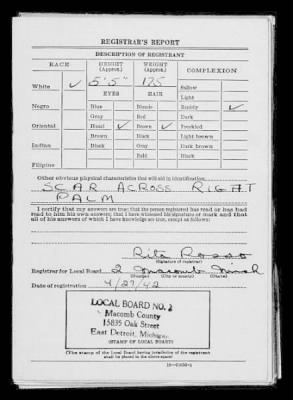 REGISTRAR'S REPORT
DESCRIPTION OF REGISTRANT
RACE HEIGHT (Approx.) WEIGHT (Approx.) COMPLEXION
White ✓ 5' 5" 175 Sallow
EYES HAIR Light
Negro Blue Blonde Ruddy ✓
Gray Red Dark
Oriental Hazel ✓ Brown ✓ Freckled
Brown Black Light brown
Indian Black Gray Dark brown
Bald Black
Filipino
Other obvious physical characteristics that will aid in identification
SCAR ACROSS RIGHT
PALM
I certify that my answers are true; that the person registered has read or has had
read to him his own answers; that I have witnessed his signature or mark and that
all of his answers of which I have knowledge are true, except as follows:
Rita Rosso
(Signature of registrar)
Registrar for Local Board 2 Macomb Mich
(Number) (City or county) (State)
Date of registration 4/27/42
LOCAL BOARD NO. 2
Macomb County
15835 Oak Street
East Detroit, Michigan
(STAMP OF LOCAL BOARD)
(The stamp of the Local Board having jurisdiction of the registrant
shall be placed in the above space)